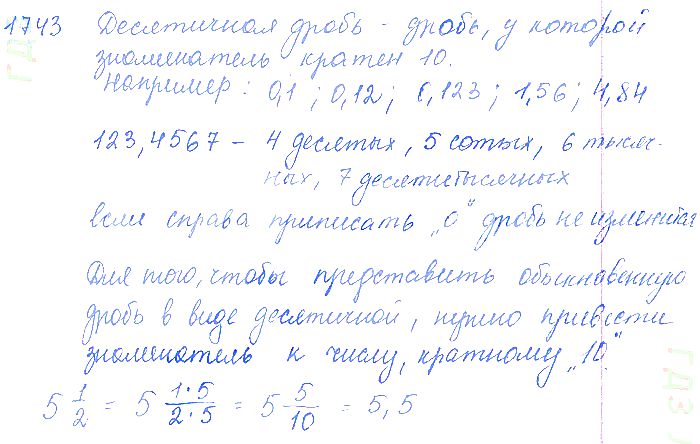 1743 Десятичная дробь - дробь, у которой
знаменатель кратен 10.
Например: 0,1; 0,12; 0,123; 1,56; 4,84
123,4567 - 4 десятых, 5 сотых, 6 тысяч-
ных, 7 десятитысячных
если справа приписать „0" дробь не изменится
Для того, чтобы представить обыкновенную
дробь в виде десятичной, нужно привести
знаменатель к числу, кратному „10"
5 1/2 = 5 1·5/2·5 = 5 5/10 = 5,5
ГДЗ
ГДЗ